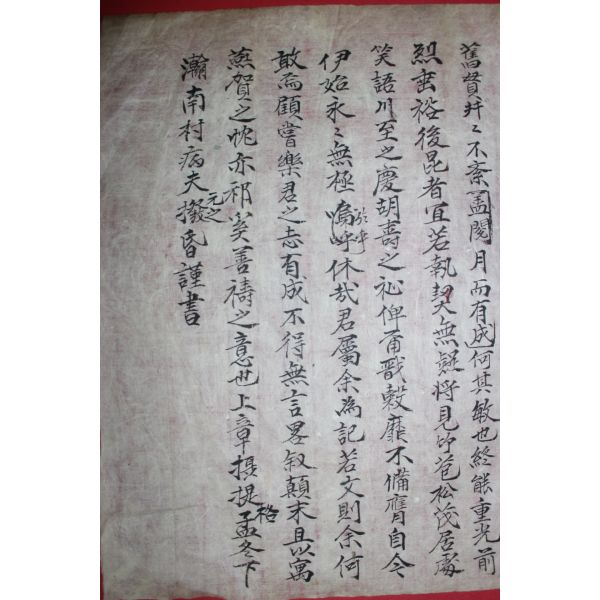 舊貫井〻不紊盖閱月而有成何其敏也終能重光前
烈垂裕後昆者宜若執契無疑將見竹苞松茂居處
笑語川至之慶胡壽之祉俾甭戩穀靡不備膺自今
伊始永〻無極嗚呼於乎休哉君屬余為記若文則余何
敢焉顧嘗樂君之志有成不得無言畧叙顛末且以寓
燕賀之忱亦祁奚善禱之意也上章攝提格孟冬下
瀚南村病夫元之撥昏謹書